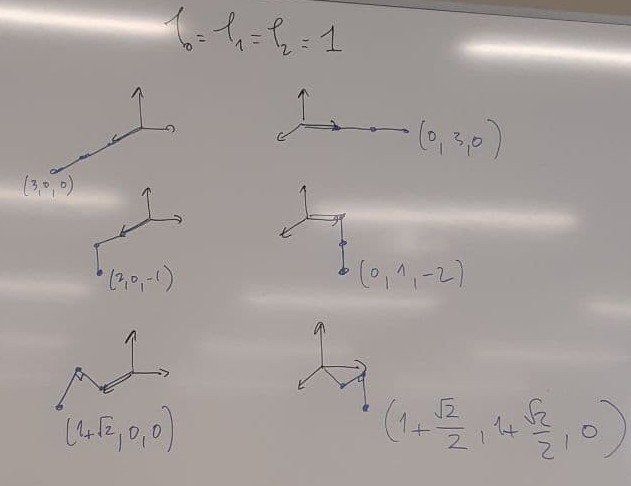 l₀ = l₁ = l₂ = 1
(3,0,0)
(0,3,0)
(2,0,-1)
(0,1,-2)
(1+√2,0,0)
(1+√2/2, 1+√2/2, 0)